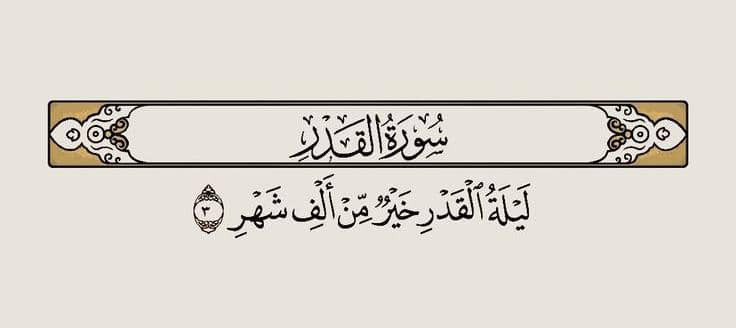 سُورَةُ الْقَدْرِ
لَيْلَةُ ٱلْقَدْرِ خَيْرٌ مِّنْ أَلْفِ شَهْرٍ ٣